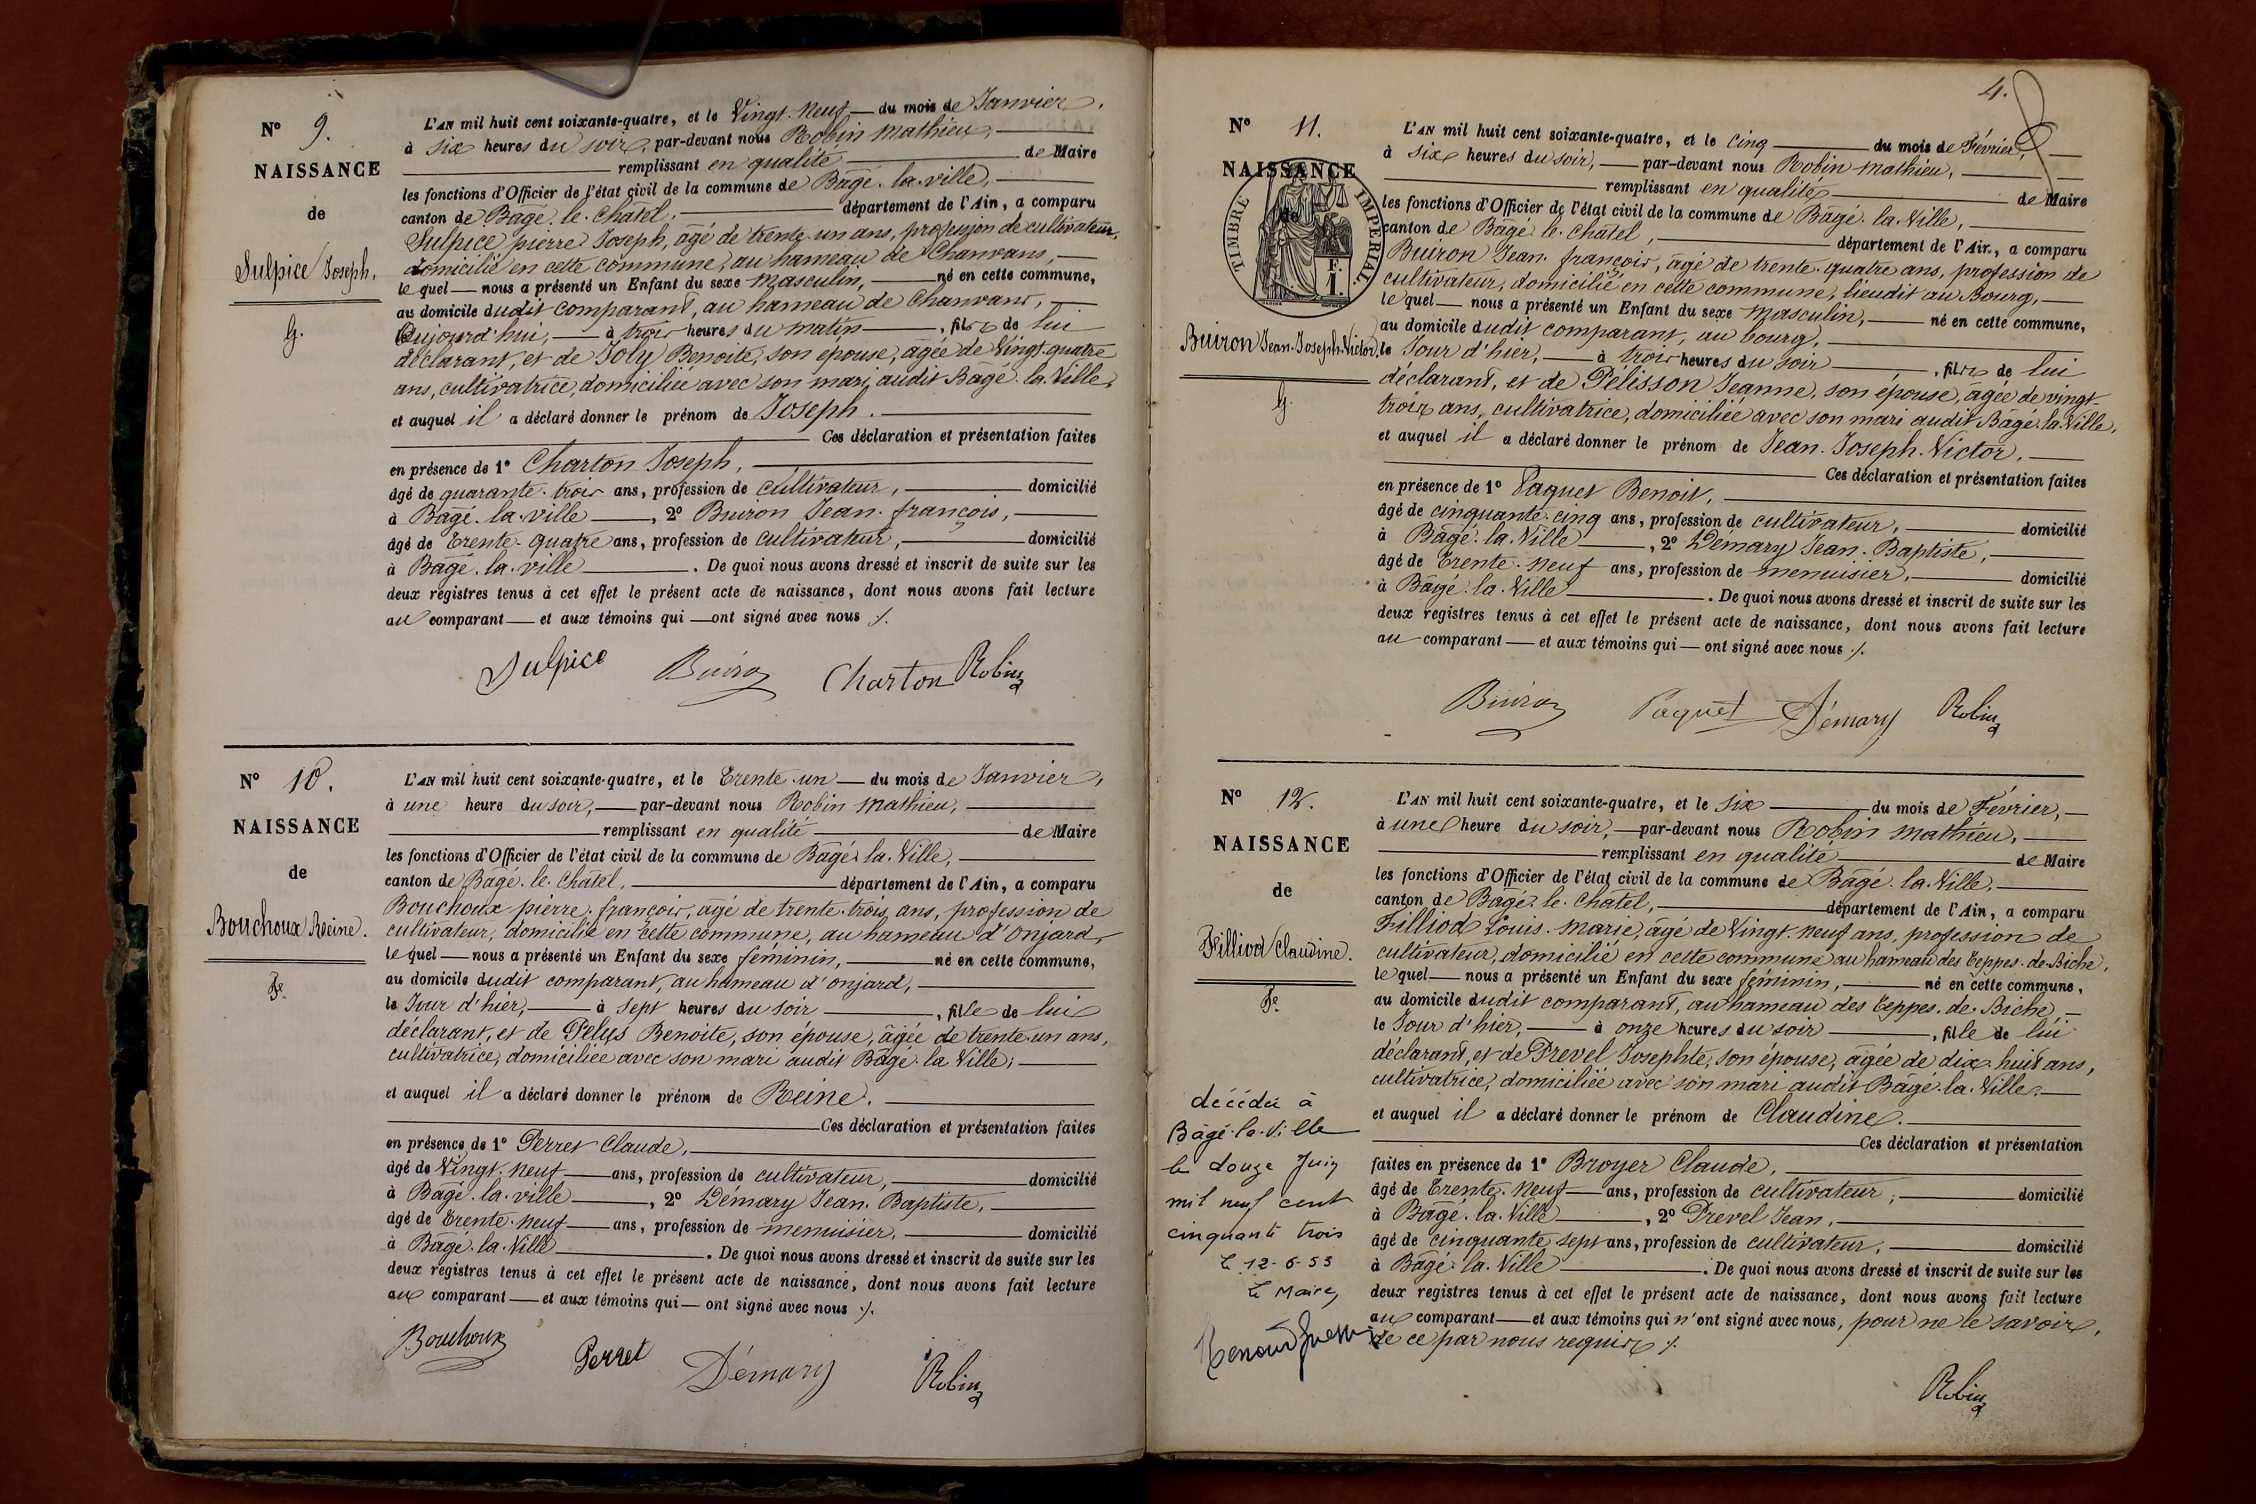 N° 9.
NAISSANCE
de
Sulpice Joseph.
G.
L'AN mil huit cent soixante-quatre, et le Vingt-Neuf du mois de Janvier,
à six heures du soir, par-devant nous Robin Mathieu,
remplissant en qualité de Maire
les fonctions d'Officier de l'état civil de la commune de Bâgé-la-ville,
canton de Bâgé-le-Châtel, département de l'Ain, a comparu
Sulpice pierre Joseph, âgé de trente-un ans, profession de cultivateur,
domicilié en cette commune, au hameau de Chanvans,
le quel nous a présenté un Enfant du sexe masculin, né en cette commune,
au domicile dudit comparant, au hameau de Chanvans,
Aujourd'hui, à trois heures du matin, fils de lui
déclarant, et de Joly Benoite, son épouse, âgée de Vingt-quatre
ans, cultivatrice, domiciliée avec son mari audit Bâgé-la-Ville,
et auquel il a déclaré donner le prénom de Joseph.
Ces déclaration et présentation faites
en présence de 1° Charton Joseph,
âgé de quarante-trois ans, profession de cultivateur, domicilié
à Bâgé-la-ville, 2° Buiron Jean-françois,
âgé de Trente-quatre ans, profession de cultivateur, domicilié
à Bâgé-la-ville. De quoi nous avons dressé et inscrit de suite sur les
deux registres tenus à cet effet le présent acte de naissance, dont nous avons fait lecture
au comparant et aux témoins qui ont signé avec nous ./.
Sulpice Buiron Charton Robin
N° 10.
NAISSANCE
de
Bouchoux Reine.
Fe.
L'AN mil huit cent soixante-quatre, et le Trente-un du mois de Janvier,
à une heure du soir, par-devant nous Robin Mathieu,
remplissant en qualité de Maire
les fonctions d'Officier de l'état civil de la commune de Bâgé-la-Ville,
canton de Bâgé-le-Châtel, département de l'Ain, a comparu
Bouchoux pierre-françois, âgé de trente-trois ans, profession de
cultivateur, domicilié en cette commune, au hameau d'onjard,
le quel nous a présenté un Enfant du sexe féminin, né en cette commune,
au domicile dudit comparant, au hameau d'onjard,
le Jour d'hier, à sept heures du soir, fille de lui
déclarant, et de Pelus Benoite, son épouse, âgée de trente-un ans,
cultivatrice, domiciliée avec son mari audit Bâgé-la-Ville;
et auquel il a déclaré donner le prénom de Reine.
Ces déclaration et présentation faites
en présence de 1° Perret Claude,
âgé de Vingt-neuf ans, profession de cultivateur, domicilié
à Bâgé-la-ville, 2° Démary Jean-Baptiste,
âgé de Trente-neuf ans, profession de menuisier, domicilié
à Bâgé-la-Ville. De quoi nous avons dressé et inscrit de suite sur les
deux registres tenus à cet effet le présent acte de naissance, dont nous avons fait lecture
au comparant et aux témoins qui ont signé avec nous ./.
Bouchoux Perret Démary Robin
4.
N° 11.
NAISSANCE
de
TIMBRE IMPERIAL.
F.
1.
Buiron Jean-Joseph-Victor,
G.
L'AN mil huit cent soixante-quatre, et le cinq du mois de Février,
à six heures du soir, par-devant nous Robin Mathieu,
remplissant en qualité de Maire
les fonctions d'Officier de l'état civil de la commune de Bâgé-la-Ville,
canton de Bâgé-le-Châtel, département de l'Ain, a comparu
Buiron Jean-françois, âgé de trente-quatre ans, profession de
cultivateur, domicilié en cette commune, lieudit au Bourg,
le quel nous a présenté un Enfant du sexe masculin, né en cette commune,
au domicile dudit comparant, au bourg,
le Jour d'hier, à trois heures du soir, fils de lui
déclarant, et de Pélisson Jeanne, son épouse, âgée de vingt-
trois ans, cultivatrice, domiciliée avec son mari audit Bâgé-la-Ville,
et auquel il a déclaré donner le prénom de Jean-Joseph-Victor.
Ces déclaration et présentation faites
en présence de 1° Paquet Benoit,
âgé de cinquante-cinq ans, profession de cultivateur, domicilié
à Bâgé-la-Ville, 2° Démary Jean-Baptiste,
âgé de Trente-Neuf ans, profession de menuisier, domicilié
à Bâgé-la-Ville. De quoi nous avons dressé et inscrit de suite sur les
deux registres tenus à cet effet le présent acte de naissance, dont nous avons fait lecture
au comparant et aux témoins qui ont signé avec nous ./.
Buiron Paquet Démary Robin
N° 12.
NAISSANCE
de
Filliod Claudine.
Fe.
L'AN mil huit cent soixante-quatre, et le six du mois de Février,
à une heure du soir, par-devant nous Robin Mathieu,
remplissant en qualité de Maire
les fonctions d'Officier de l'état civil de la commune de Bâgé-la-Ville,
canton de Bâgé-le-Châtel, département de l'Ain, a comparu
Filliod Louis-Marie, âgé de Vingt-neuf ans, profession de
cultivateur, domicilié en cette commune au hameau des Teppes-de-Biche,
le quel nous a présenté un Enfant du sexe féminin, né en cette commune,
au domicile dudit comparant, au hameau des Teppes-de-Biche
le Jour d'hier, à onze heures du soir, fille de lui
déclarant, et de Prevel Josephte, son épouse, âgée de dix-huit ans,
cultivatrice, domiciliée avec son mari audit Bâgé-la-Ville.
et auquel il a déclaré donner le prénom de Claudine.
Ces déclaration et présentation
faites en présence de 1° Broyer Claude,
âgé de Trente-Neuf ans, profession de cultivateur, domicilié
à Bâgé-la-Ville, 2° Prevel Jean,
âgé de cinquante sept ans, profession de cultivateur, domicilié
à Bâgé-la-Ville. De quoi nous avons dressé et inscrit de suite sur les
deux registres tenus à cet effet le présent acte de naissance, dont nous avons fait lecture
au comparant et aux témoins qui n'ont signé avec nous, pour ne le savoir,
de ce par nous requis ./.
Robin
décédée à
Bâgé-la-Ville
le douze Juin
mil neuf cent
cinquante trois
le 12-6-53
Le Maire,